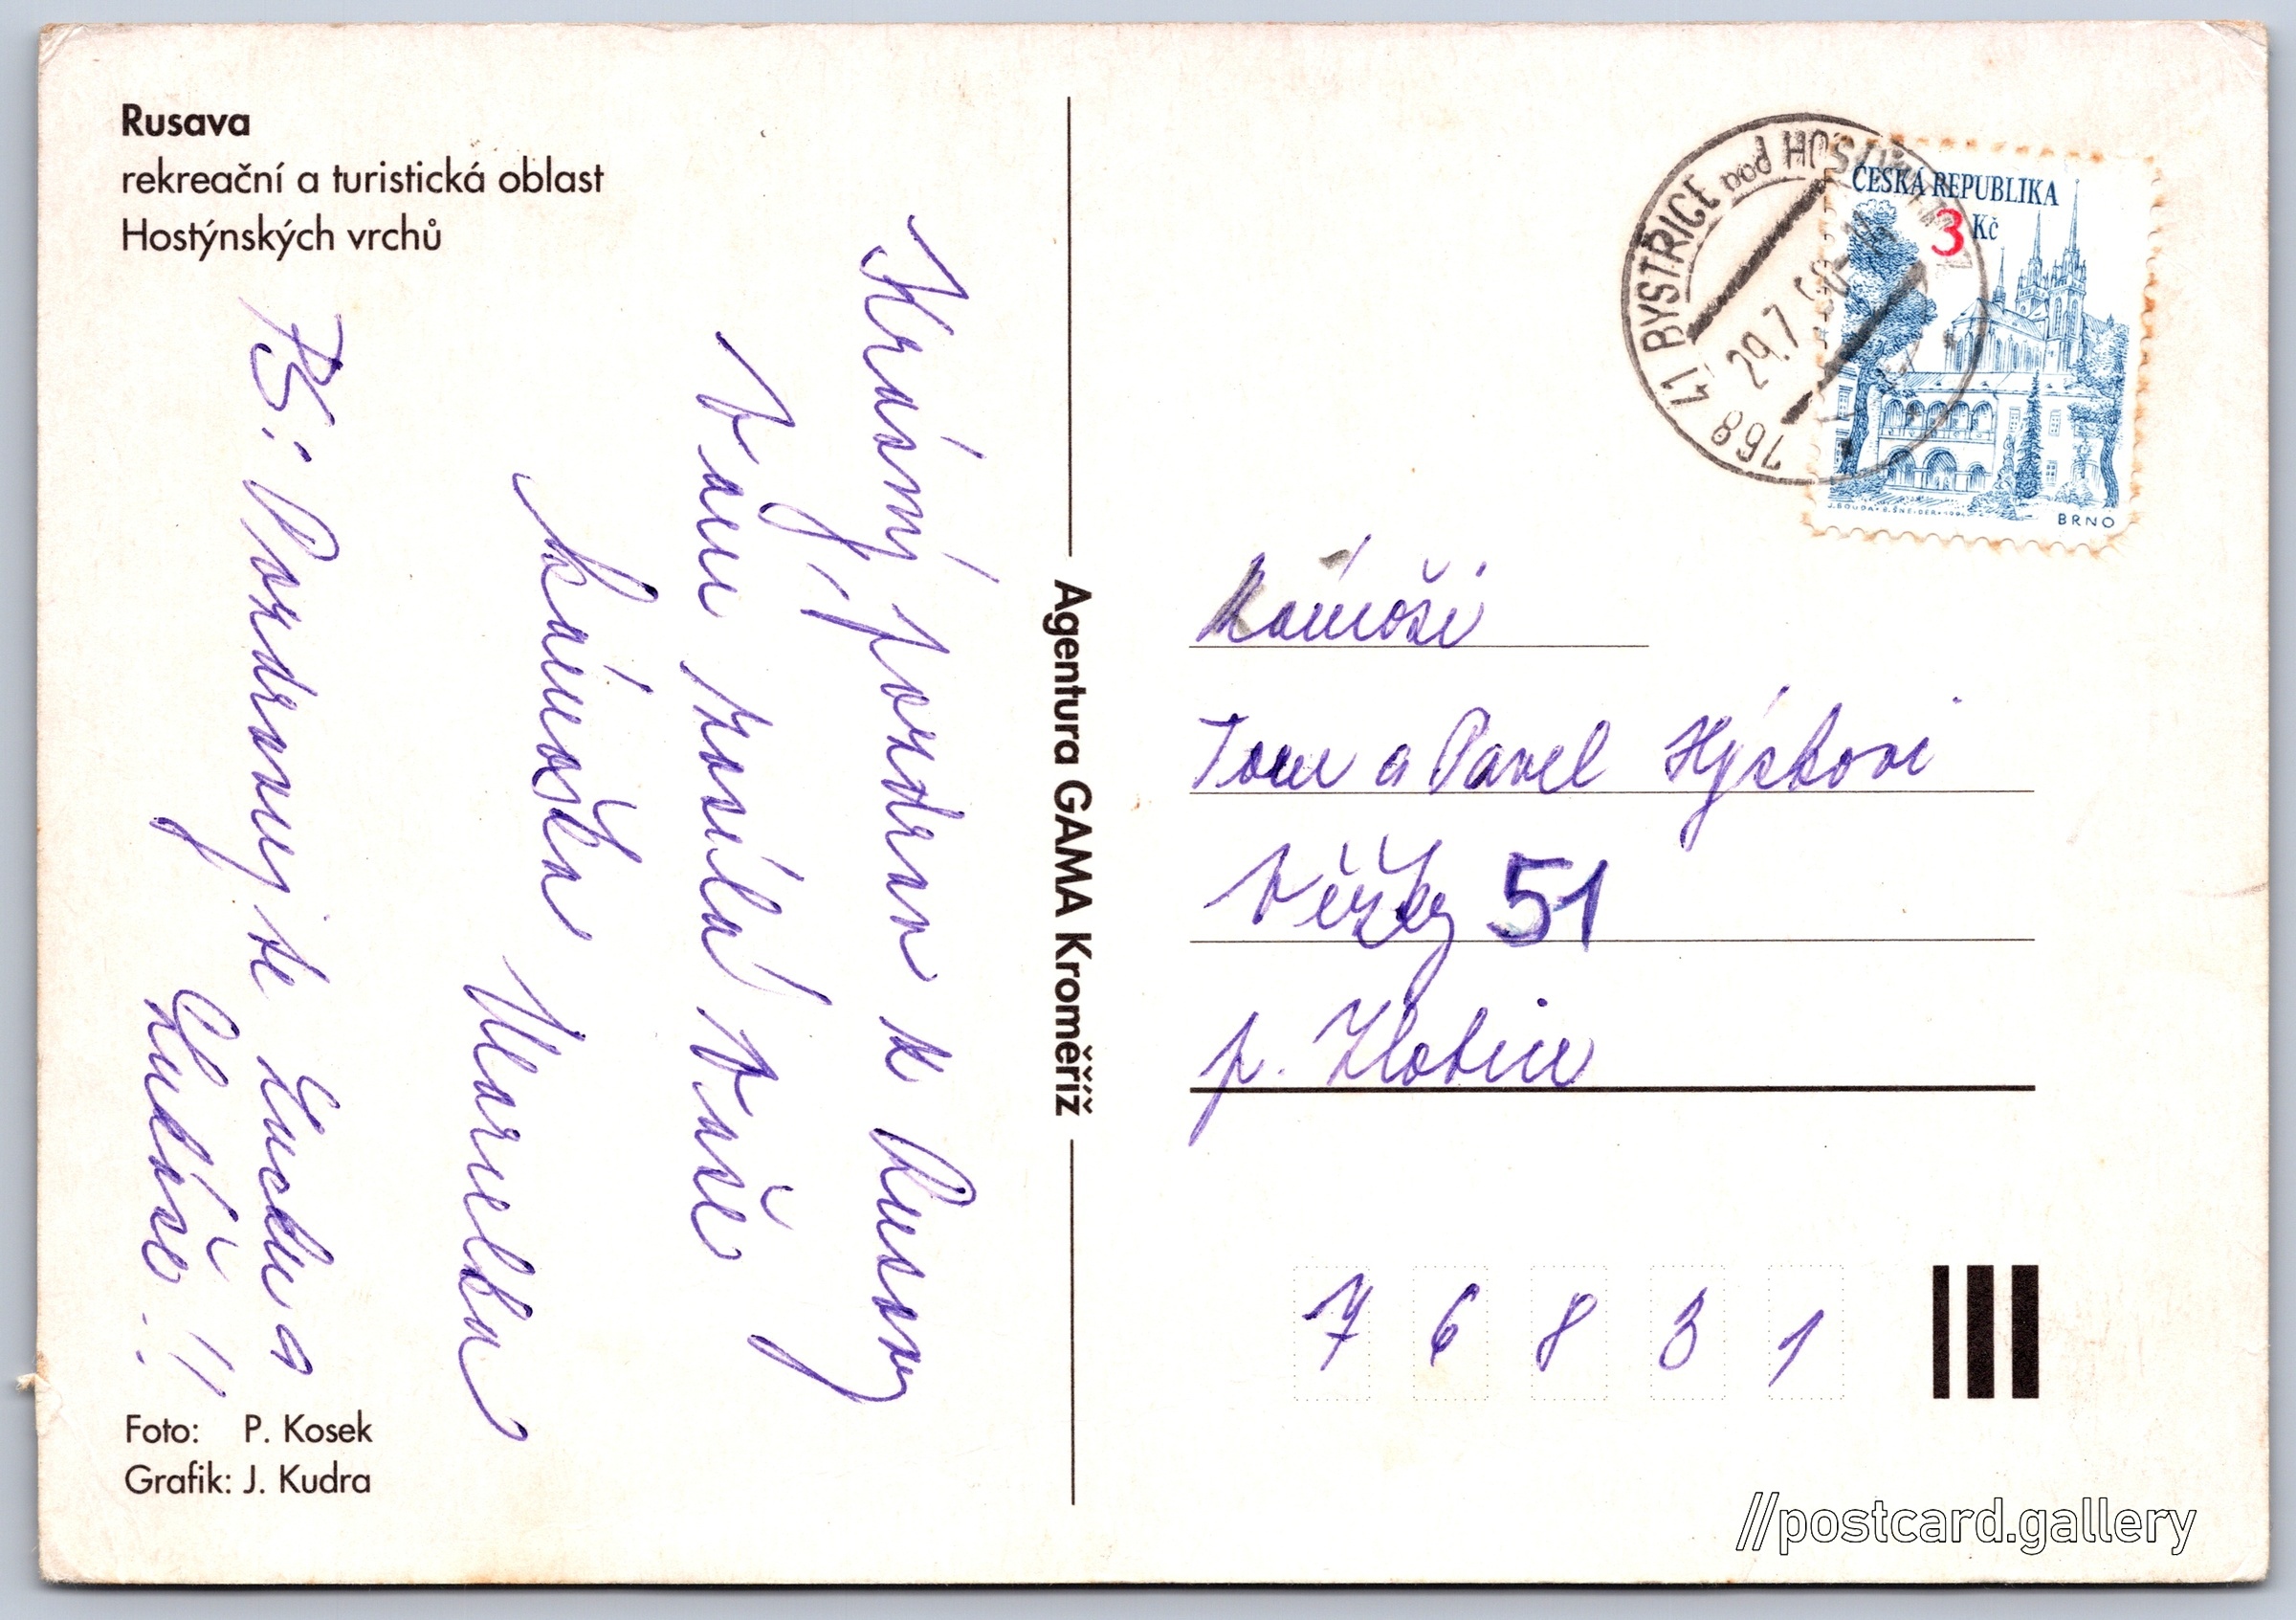 Rusava
rekreační a turistická oblast
Hostýnských vrchů
Krásný pozdrav z Rusavy
Vám posílá Vaše
kámoška Marcelka
PS: Pozdravujte Lucku a
Luboše!!
Foto: P. Kosek
Grafik: J. Kudra
Agentura GAMA Kroměříž
768 41 BYSTŘICE pod HOSTÝNEM
29.7
ČESKÁ REPUBLIKA
3 Kč
BRNO
Kámoši
Tom a Pavel Hýskovi
Věžky 51
p. Zlobice
76831
//postcard.gallery